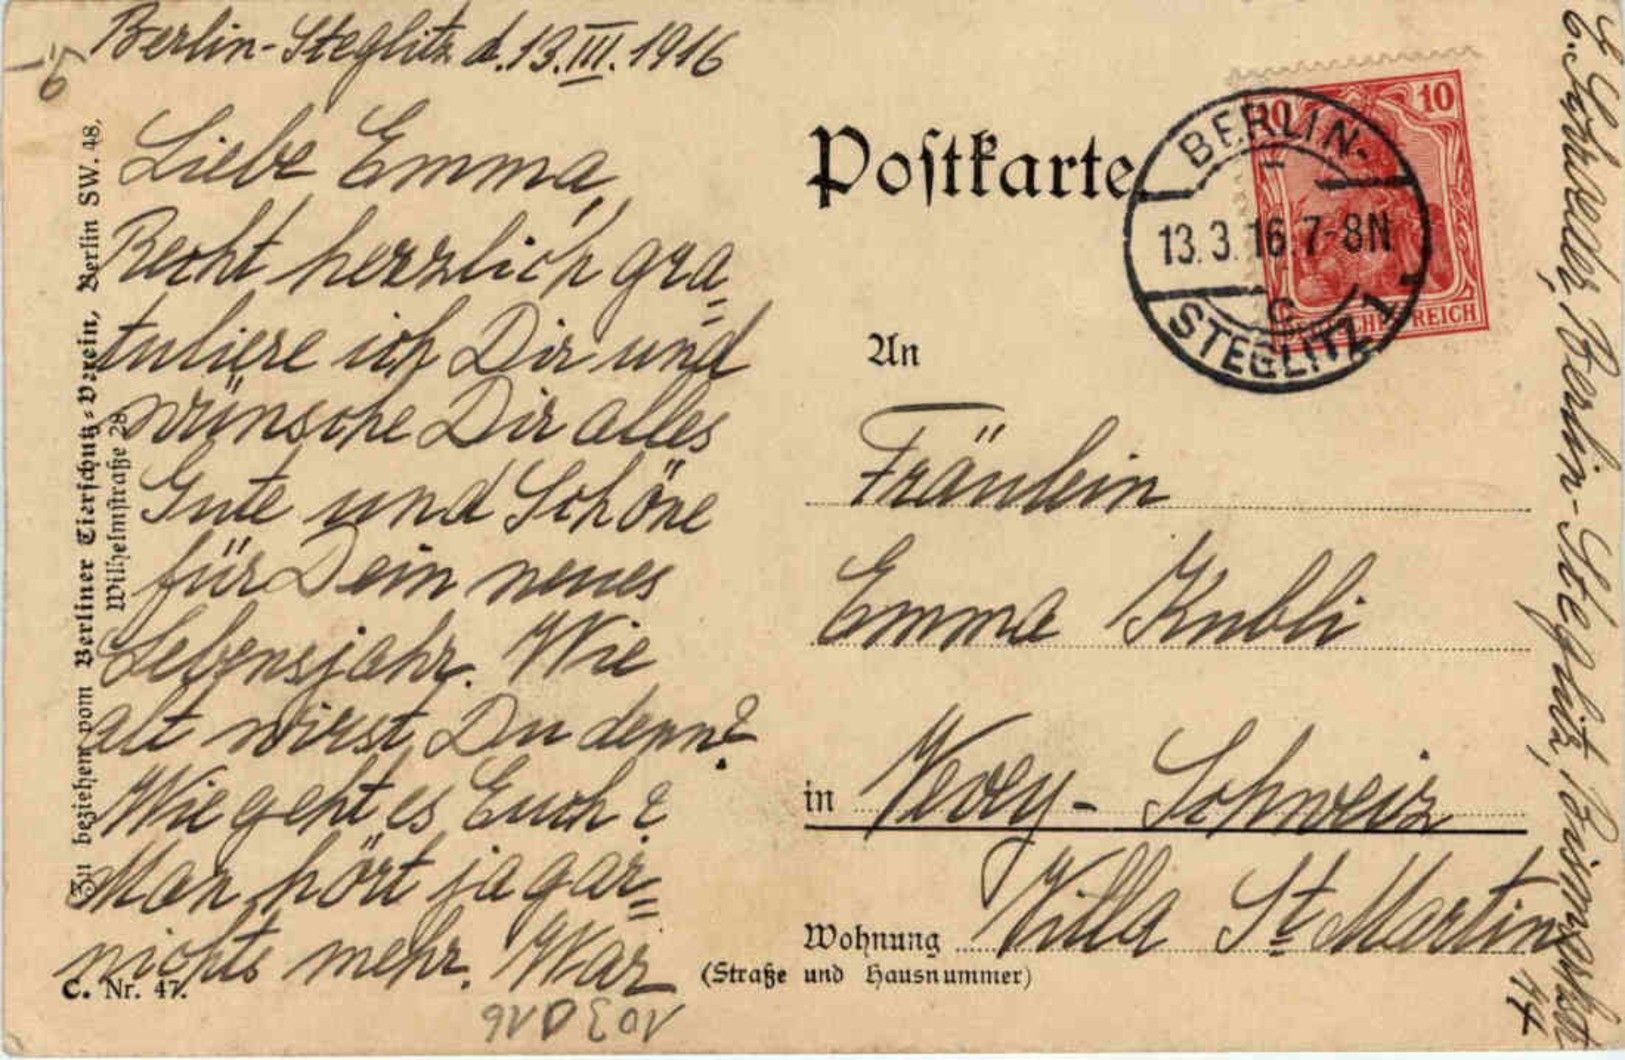 Berlin-Steglitz d. 13. III. 1916
Liebe Emma,
Recht herzlich gra-
tuliere ich Dir und
wünsche Dir alles
Gute und Schöne
für Dein neues
Lebensjahr. Wie
alt wirst Du denn?
Wie geht es Euch?
Man hört ja gar-
nichts mehr. War
Zu beziehen vom Berliner Tierschutz-Verein, Berlin SW. 48,
Wilhelmstraße 28.
C. Nr. 47.
Postkarte
10
DEUTSCHES REICH
BERLIN-
13.3.16.7-8N
STEGLITZ 1
c
An
Fräulein
Emma Kubli
in Vevey - Schweiz
Wohnung Villa St. Martin
(Straße und Hausnummer)
Berlin-Steglitz, Bismarckst